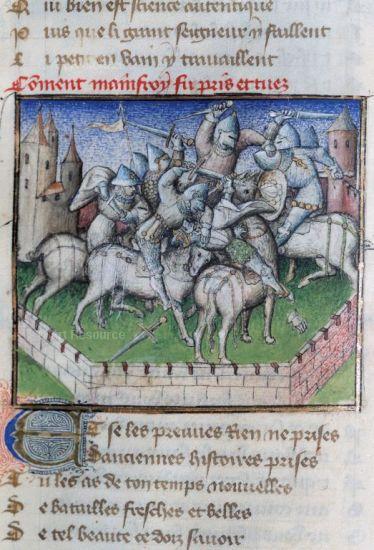 Q ui bien est science autentique
P uis que li grant seigneur y faillent
L i petit en vain y travaillent
Coment mainfroy fu pris et tuez
Art Resource
E T se les preuves rien ne prises
D anciennes histoires prises
T u les as de ton temps nouvelles
D e batailles fresches et belles
D e tel beaute ce dois savoir